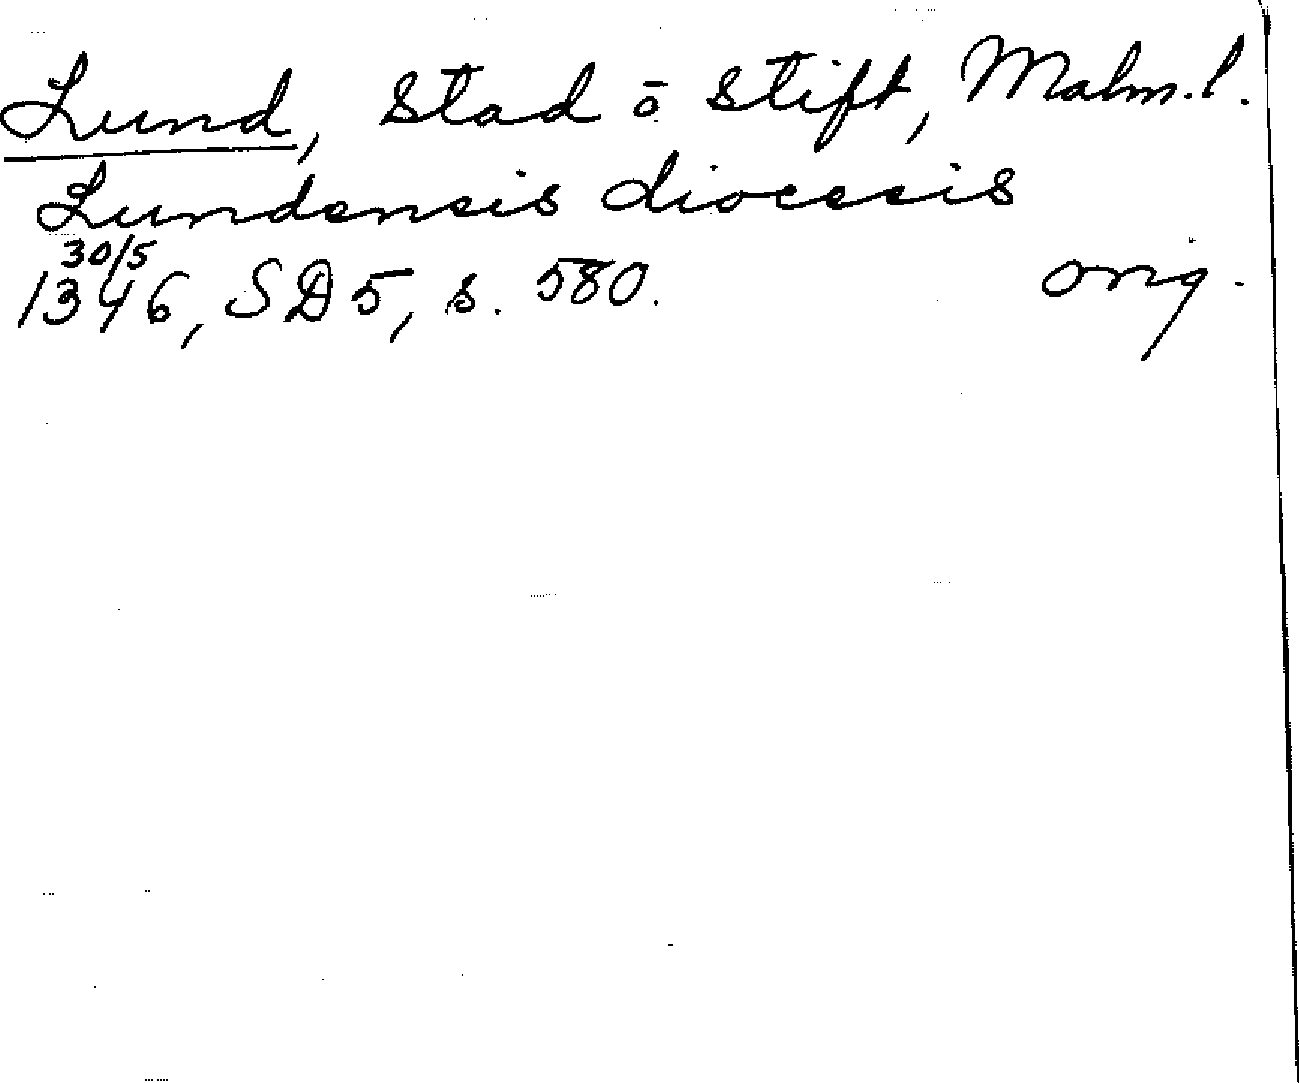 Lund, Stad ō Stift, Malm.l.
Lundensis diocesis
30/5
1346, SD5, s. 580. orig.